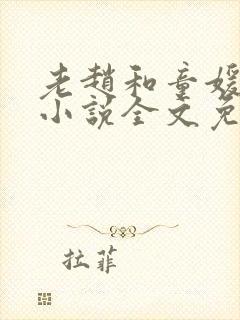 老趙和童媛
小說全文免
拉菲